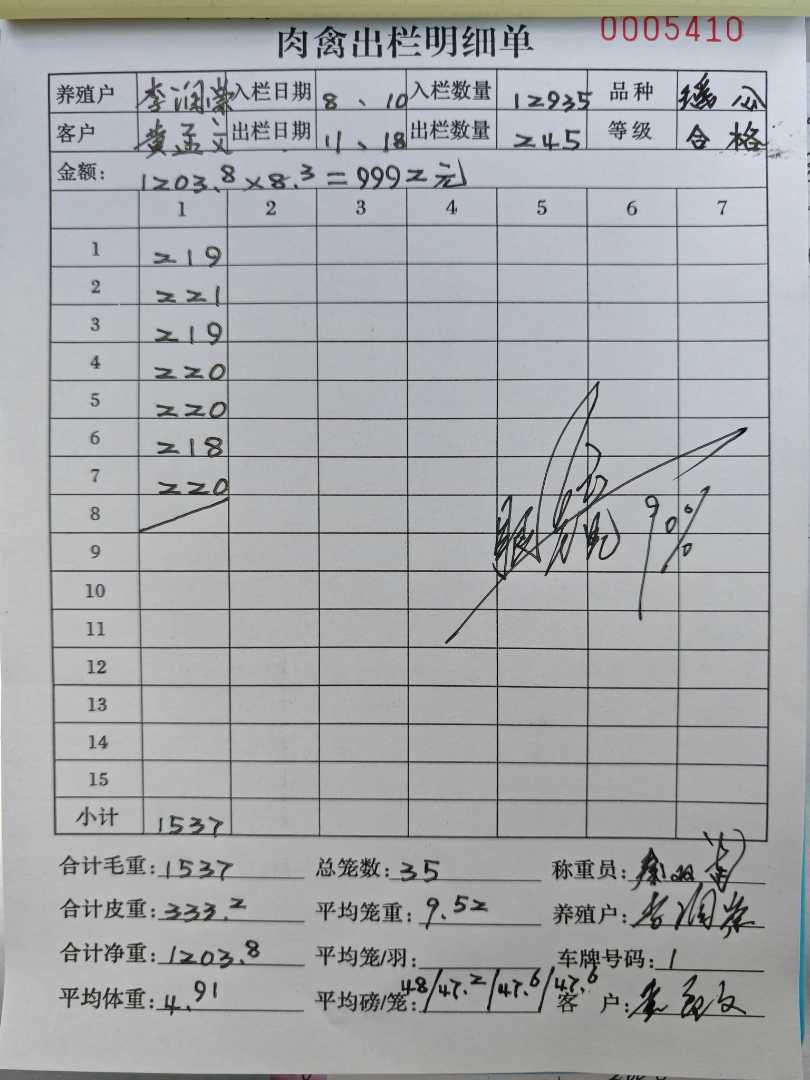 0005410
肉禽出栏明细单
养殖户 李润荣 入栏日期 8、10 入栏数量 12935 品种 瑶公
客户 黄孟文 出栏日期 11、18 出栏数量 245 等级 合格
金额: 1203.8×8.3=9992元
1 2 3 4 5 6 7
1 219
2 221
3 219
4 220
5 220
6 218
7 220
8
9
90%
10
11
12
13
14
15
小计 1537
合计毛重: 1537 总笼数: 35 称重员:
合计皮重: 333.2 平均笼重: 9.52 养殖户: 李润荣
合计净重: 1203.8 平均笼/羽: 车牌号码: 1
平均体重: 4.91 平均磅/笼: 48/47.2/47.6/47.6 客 户: